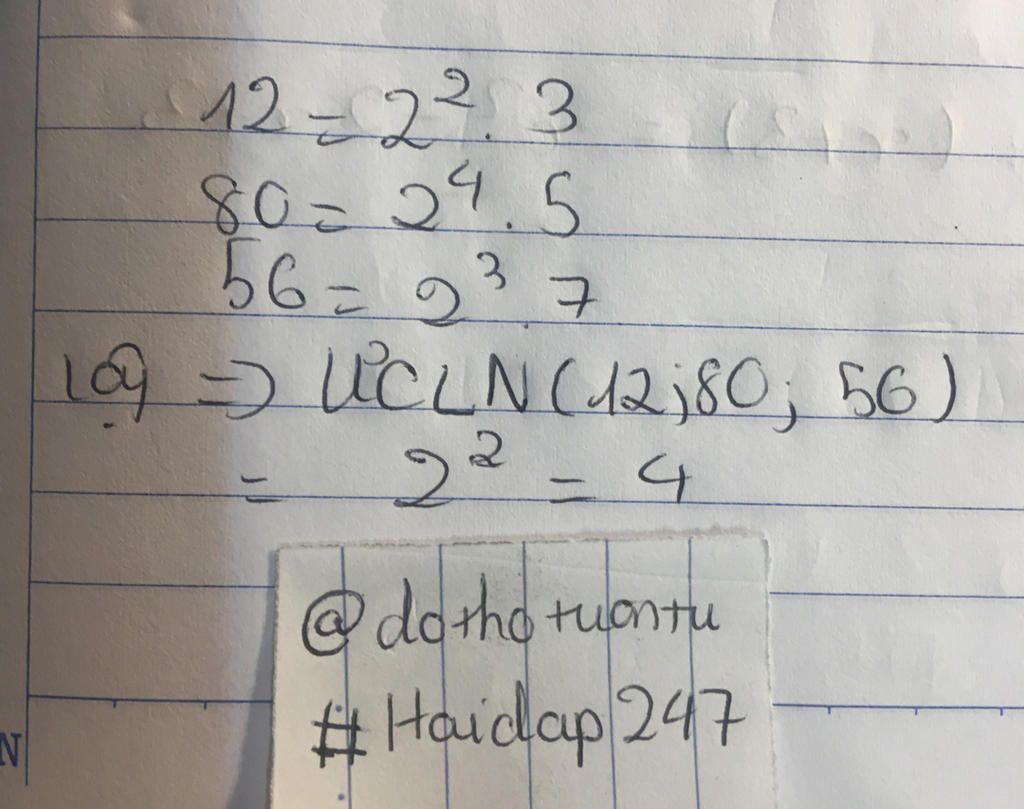 12 = 2². 3
80 = 2⁴. 5
56 = 2³. 7
=> ƯCLN (12; 80; 56)
= 2² = 4
@dothotuantu
#Hoidap247
N